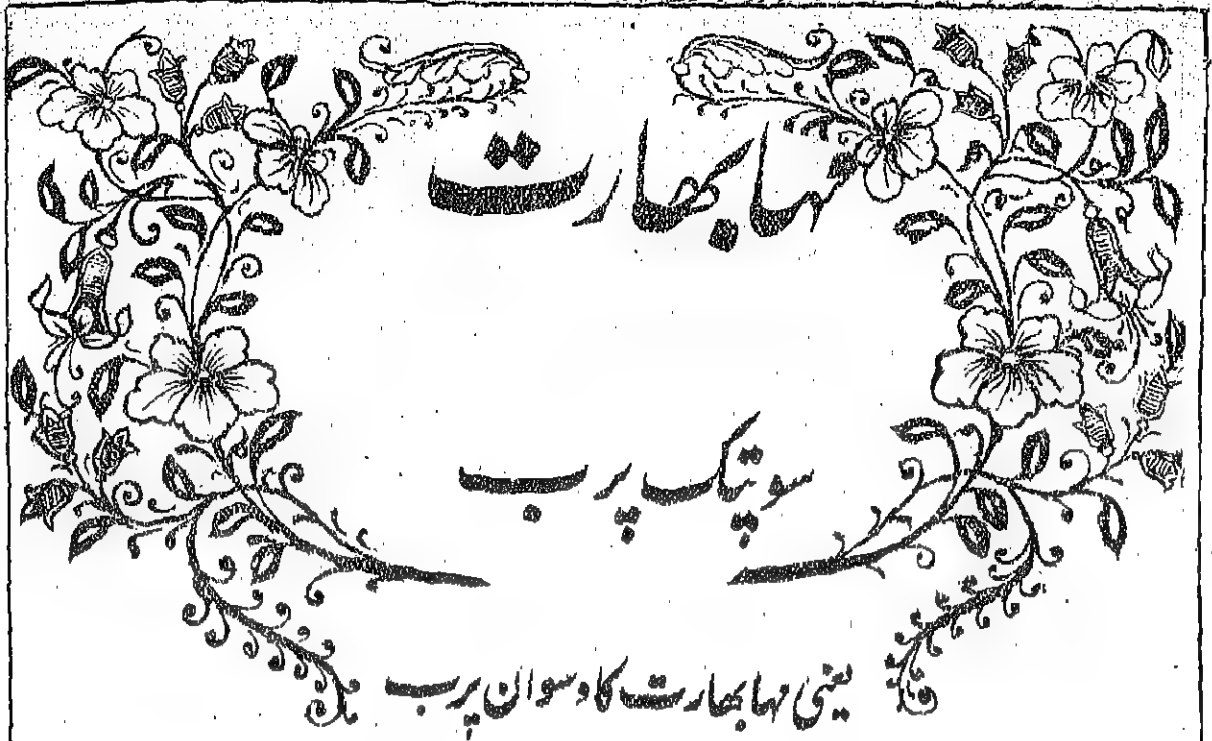 مہابھارت
سوپتک پرب
یعنی مہابھارت کا دسوان پرب